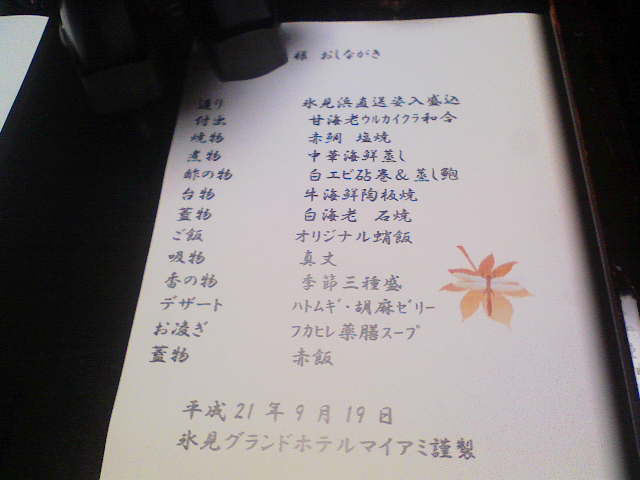 様 おしながき
造り 氷見浜直送姿入盛込
付出 甘海老ウルカイクラ和合
焼物 赤鯛 塩焼
煮物 中華海鮮蒸し
酢の物 白エビ砧巻&蒸し鮑
台物 牛海鮮陶板焼
蓋物 白海老 石焼
ご飯 オリジナル蛸飯
吸物 真丈
香の物 季節三種盛
デザート ハトムギ・胡麻ゼリー
お凌ぎ フカヒレ薬膳スープ
蓋物 赤飯
平成21年9月19日
氷見グランドホテルマイアミ謹製